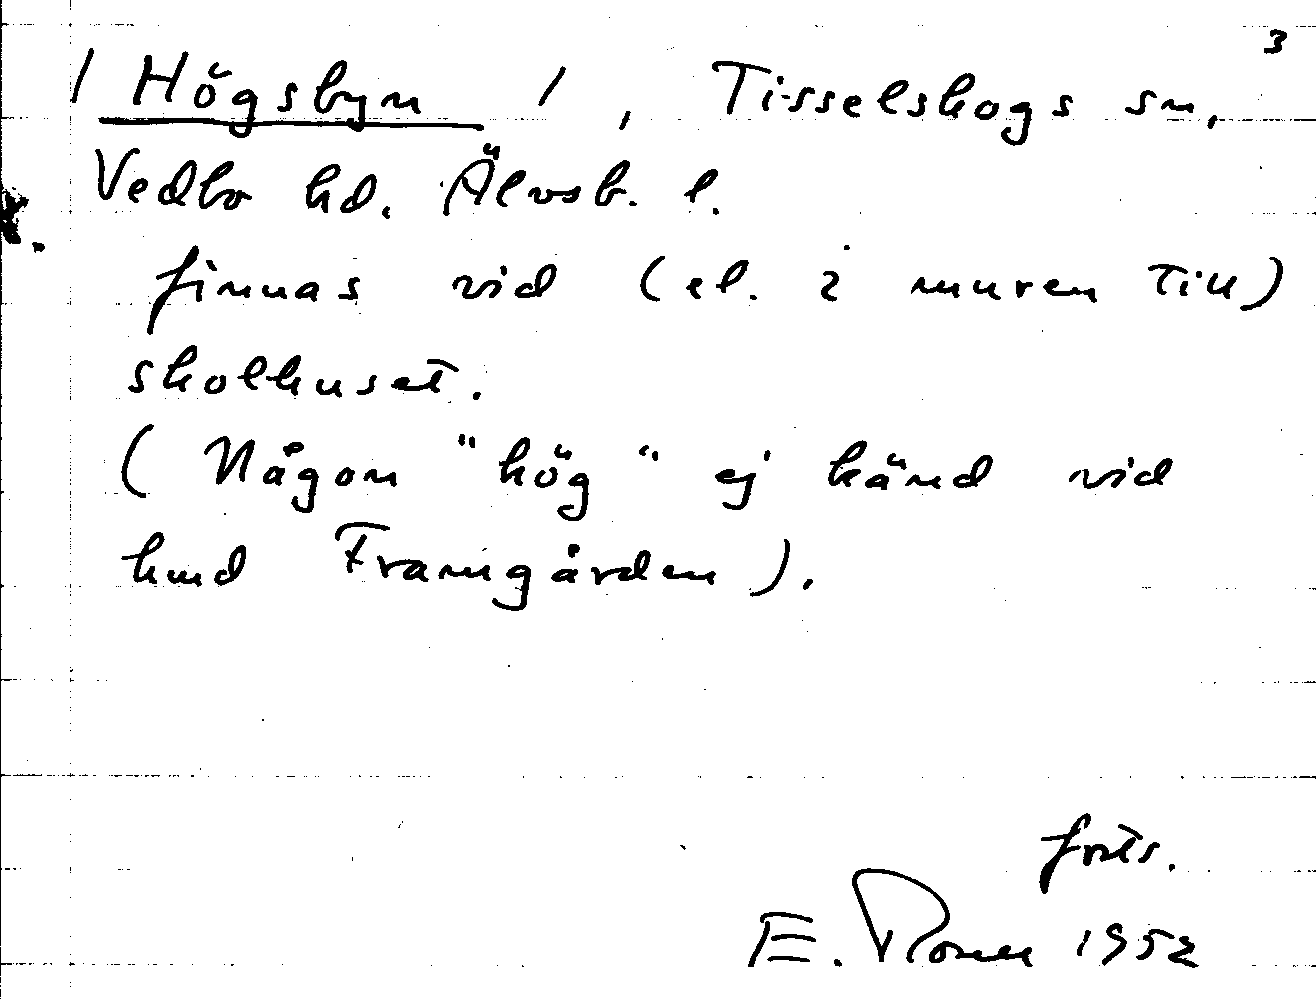 3
/ Högsbyn /, Tisselskogs sn,
Vedbo hd. Älvsb. l.
finnas vid (el. i muren till)
skolhuset.
( Någon "hög" ej känd vid
hmd Framgården ).
forts.
E. 1952